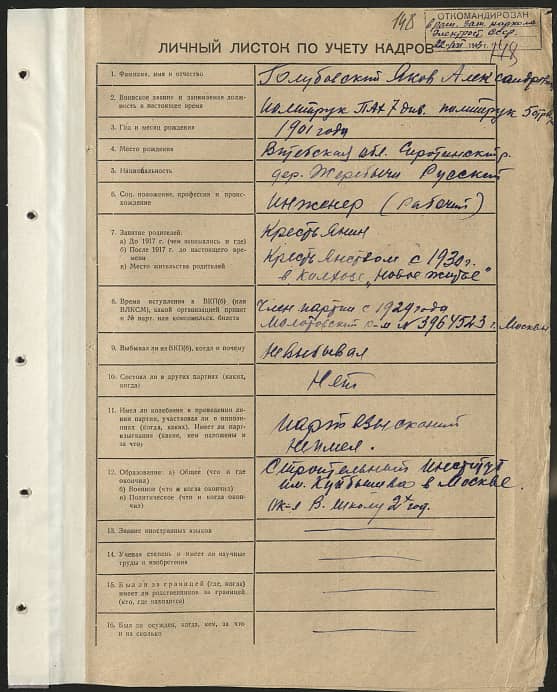 148
ОТКОМАНДИРОВАН
в расп. зам. наркома
Электрост. СССР.
149
ЛИЧНЫЙ ЛИСТОК ПО УЧЕТУ КАДРОВ
1. Фамилия, имя и отчество
Голубовский Яков Александрович
2. Воинское звание и занимаемая долж-
ность в настоящее время
политрук ПАХ 7 див. политрук
3. Год и месяц рождения
1901 года
4. Место рождения
Витебская обл. Сиротинский р.
дер. Жеребычи
5. Национальность
Русский
6. Соц. положение, профессия и проис-
хождение
Инженер (Рабочий)
7. Занятие родителей:
а) До 1917 г. (чем занимались и где)
б) После 1917 г. до настоящего вре-
мени
в) Место жительства родителей
Крестьянин
Крестьянством с 1930 г.
в колхозе „Новое житье"
8. Время вступления в ВКП(б) (или
ВЛКСМ), какой организацией принят
и № парт. или комсомольск. билета
Член партии с 1929 года
Молотовский р-м № 3964523 г. Москвы
9. Выбывал ли из ВКП(б), когда и почему
Невыбывал
10. Состоял ли в других партиях (каких,
когда)
Нет
11. Имел ли колебания в проведении ли-
нии партии, участвовал ли в оппози-
циях (когда, каких). Имеет ли парт-
взыскания (какие, кем наложены и
за что)
Партвзысканий
неимел.
12. Образование: а) Общее (что и где
окончил)
б) Военное (что и когда окончил)
в) Политическое (что и когда окон-
чил)
Строительный Институт
им. Куйбышева в Москве.
В. школу 2х год.
13. Знание иностранных языков
14. Ученая степень и имеет ли научные
труды и изобретения
15. Был ли за границей (где, когда)
имеет ли родственников за границей
(кто, где находится)
16. Был ли осужден, когда, кем, за что
и на сколько